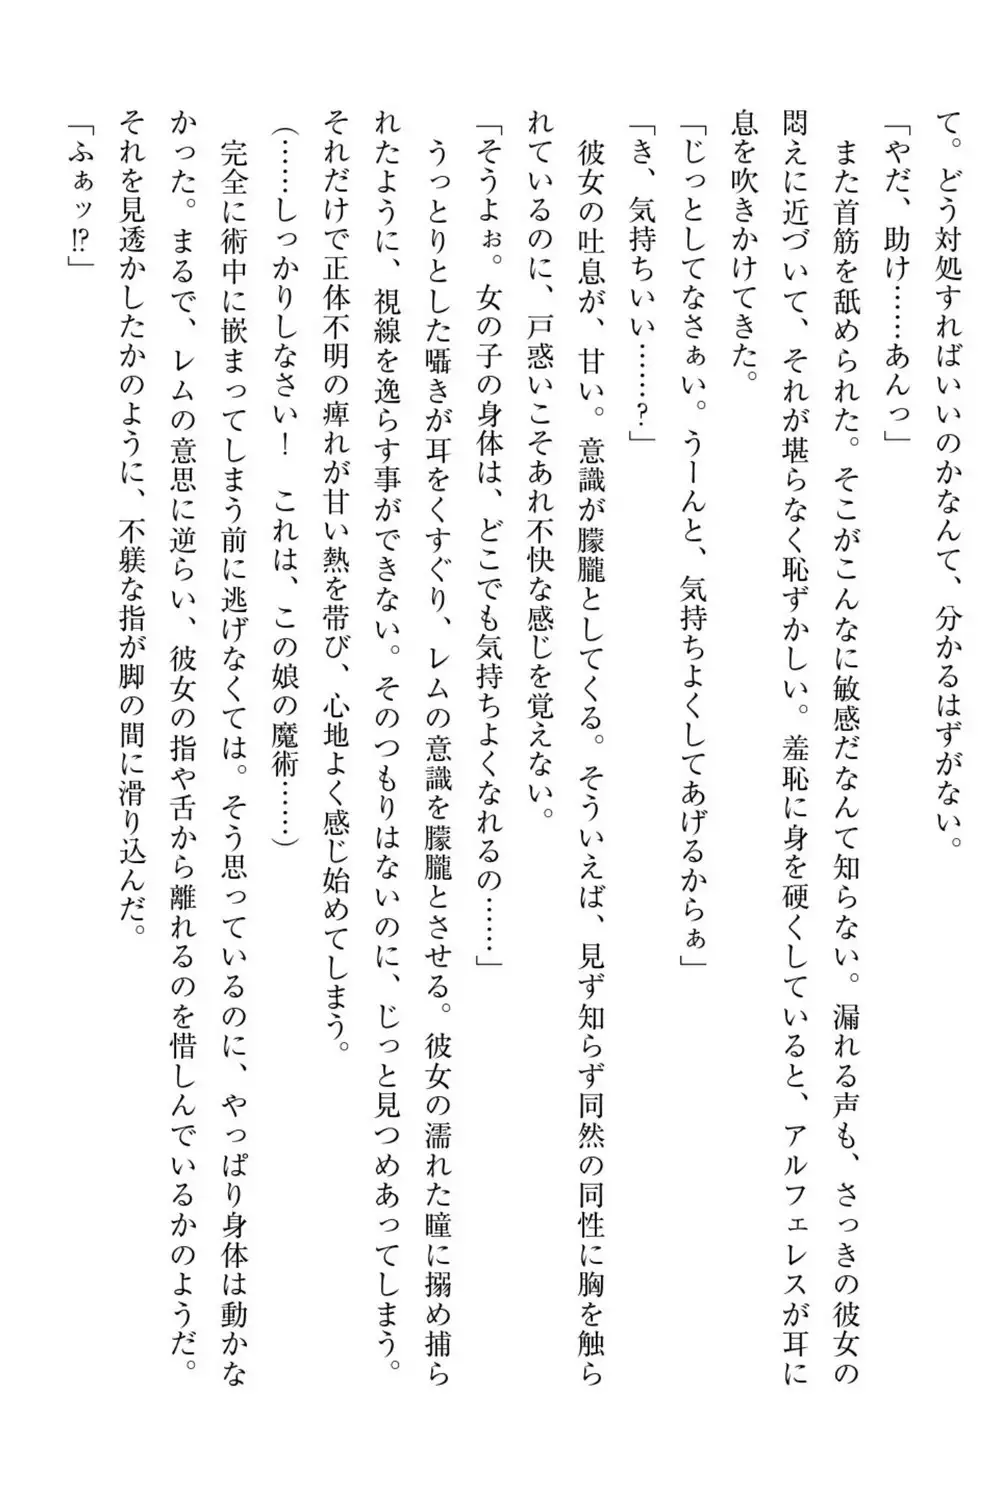 て。どう対処すればいいのかなんて、分かるはずがない。
「やだ、助け……あんっ」
また首筋を舐められた。そこがこんなに敏感だなんて知らない。漏れる声も、さっきの彼女の
悶えに近づいて、それが堪らなく恥ずかしい。羞恥に身を硬くしていると、アルフェレスが耳に
息を吹きかけてきた。
「じっとしてなさぁい。うーんと、気持ちよくしてあげるからぁ」
「き、気持ちいい……？」
彼女の吐息が、甘い。意識が朦朧としてくる。そういえば、見ず知らず同然の同性に胸を触ら
れているのに、戸惑いこそあれ不快な感じを覚えない。
「そうよぉ。女の子の身体は、どこでも気持ちよくなれるの……」
うっとりとした囁きが耳をくすぐり、レムの意識を朦朧とさせる。彼女の濡れた瞳に搦め捕ら
れたように、視線を逸らす事ができない。そのつもりはないのに、じっと見つめあってしまう。
それだけで正体不明の痺れが甘い熱を帯び、心地よく感じ始めてしまう。
（……しっかりしなさい！　これは、この娘の魔術……）
完全に術中に嵌まってしまう前に逃げなくては。そう思っているのに、やっぱり身体は動かな
かった。まるで、レムの意思に逆らい、彼女の指や舌から離れるのを惜しんでいるかのようだ。
それを見透かしたかのように、不躾な指が脚の間に滑り込んだ。
「ふぁッ⁉」